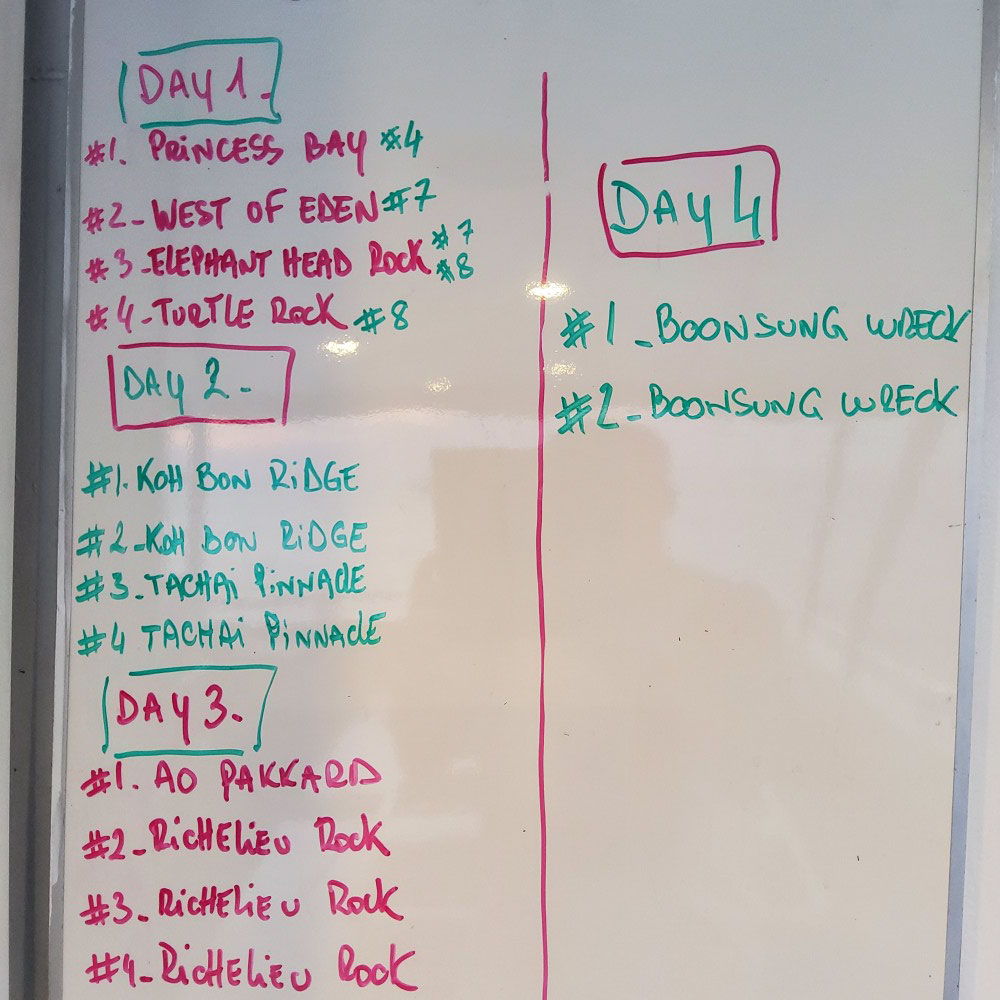 DAY 1.
#1. PRiNCESS BAY #4
#2- WEST OF EDEN #7
#3-ELEPHANT HEAD ROCK #7 #8
#4-TURTLE ROCK #8
DAY 2-
#1. KOH BON RiDGE
#2-KOH BON RiDGE
#3-TACHAi PiNNACLE
#4 TACHAi PiNNACLE
DAY 3.
#1. AO PAKKARD
#2-RiCHELiEU ROCK
#3-RiCHELiEU ROCK
#4-RiCHELiEU ROCK
DAY 4
#1-BOONSUNG WRECK
#2-BOONSUNG WRECK